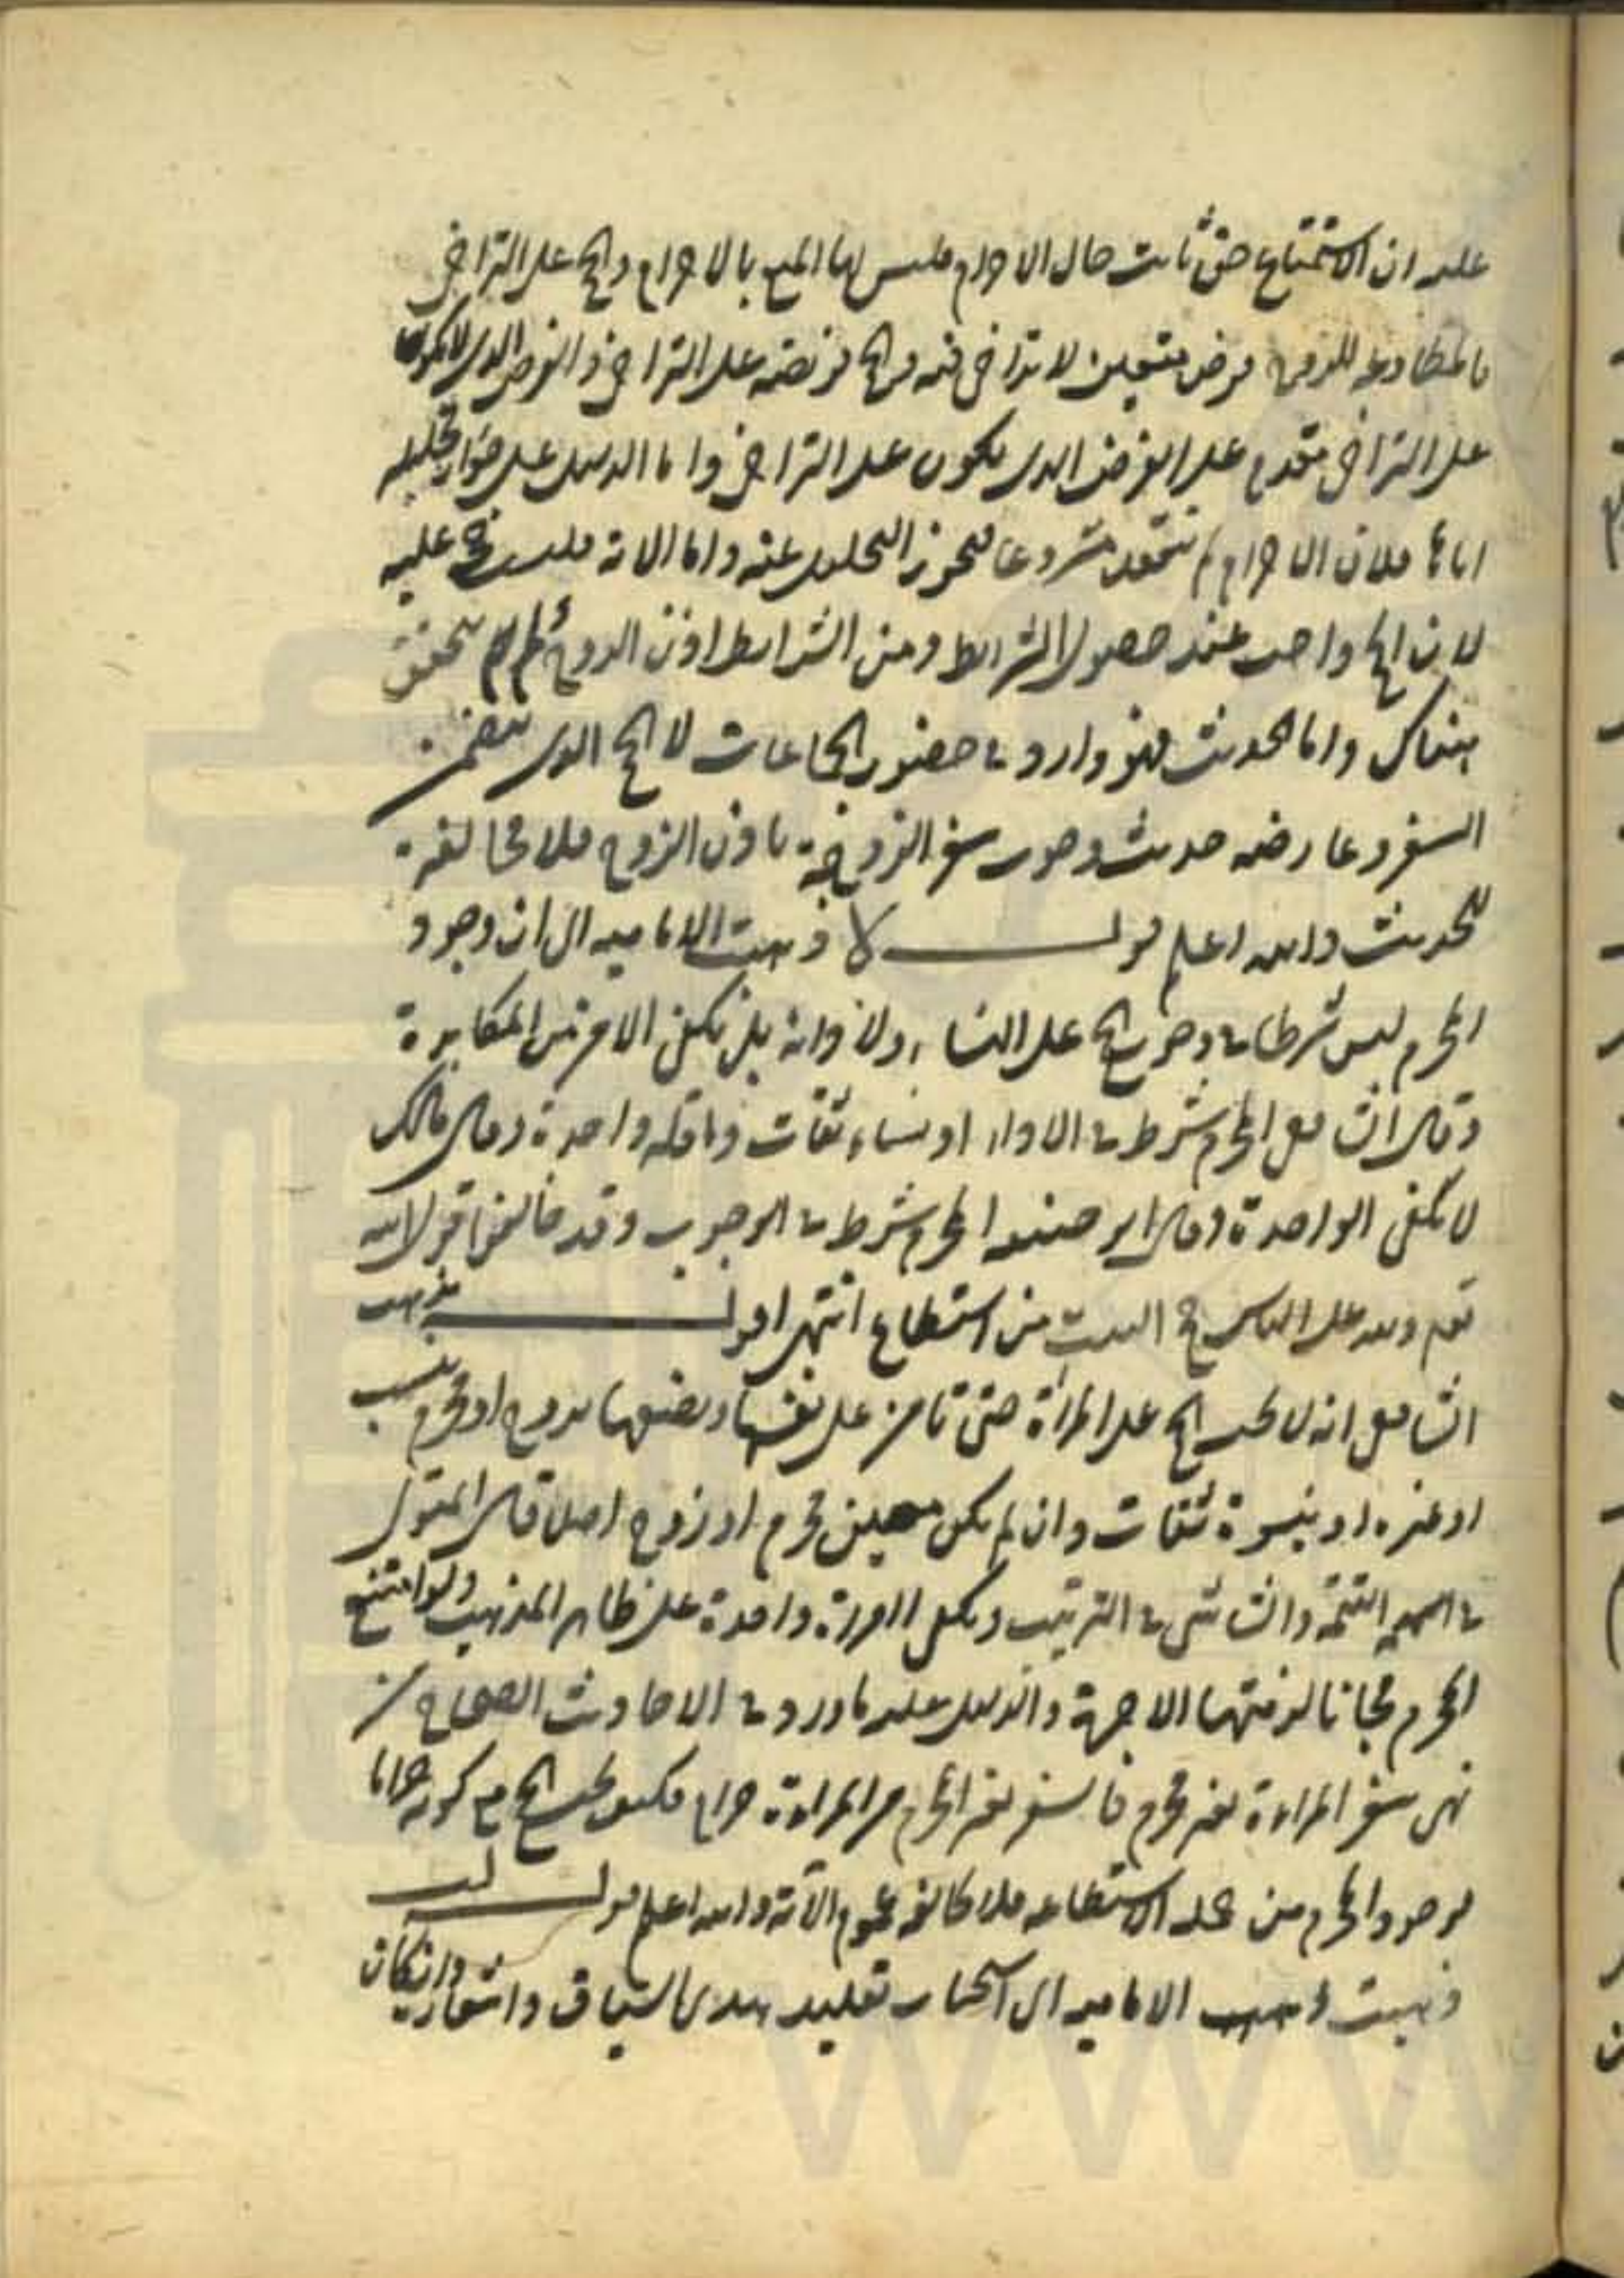 عليه ان الاستمتاع حق ثابت حال الاحرام فليس لها المنع بالاحرام والحج على التراخى
فالمطاوعة للزوج فرض متعين لا تراخى فيه والحج فريضة على التراخى والفرض الذى لا يكون
على التراخى مقدم على الفرض الذى يكون على التراخى واما الدليل على جواز تحليله
اياها فلان الاحرام لم ينعقد مشروعا فيجوز التحليل عنه واما الاية فليست حجة عليه
لان الحج واجب عند حصول الشرايط ومن الشرايط اذن الزوج فلم يتحقق
هناك واما الحديث فهو وارد فى حضور الجماعات لا الحج الذى يتضمن
السفر وعارضه حديث وجوب سفر الزوجة باذن الزوج فلا مخالفة
للحديث والله اعلم قولــه لا ذهبت الامامية الى ان وجود
المحرم ليس شرطا فى وجوب الحج على النساء ولا فى ادائه بل يكفى الامن من المكابرة
وقال الشافعى المحرم شرط فى الاداء او نساء ثقات واقله واحدة وقال مالك
لا يكفى الواحدة وقال ابو حنيفه المحرم شرط فى الوجوب وقد خالفوا قول الله
تعالى ولله على الناس حج البيت من استطاع انتهى اقولــ مذهب
الشافعى انه لا يجب الحج على المراة حتى تامن على نفسها وبضعها بزوج او محرم بنسب
او غيره او بنسوة ثقات وان لم يكن معهن محرم او زوج احداهن قال المتولى
فى التتمة والشاشى فى الترتيب ويكفى المراة واحدة على ظاهر المذهب ولو امتنع
المحرم مجانا لزمتها الاجرة والدليل عليه ما ورد فى الاحاديث الصحاح من
نهى سفر المراءة بغير محرم فالسفر بغير المحرم من المراءة حرام فكيف يجب الحج مع كونه حراما
فوجود المحرم من جملة الاستطاعه فلا مخالفة عموم الآية والله اعلم قولــ لب
ذهبت ذهبت الامامية الى استحباب تقليد هدى السياق واشعاره ان كان